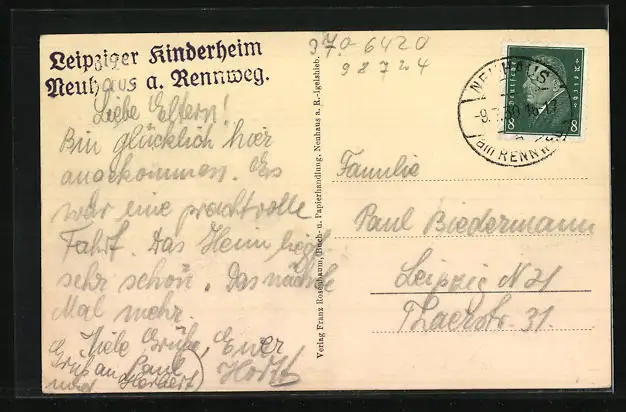 Leipziger Kinderheim
Neuhaus a. Rennweg.
Liebe Eltern!
Bin glücklich hier
angekommen. Es
war eine prachtvolle
Fahrt. Das Heim liegt
sehr schön. Das nächste
Mal mehr.
Viele Grüße, Euer
Horst
Gruß an Paul
und Herbert
Verlag Franz Rosenbaum, Buch- u. Papierhandlung, Neuhaus a. R.-Igelshieb.
6420
98724
NEUHAUS
am RENNWEG
Deutsches Reich
8 8
Familie
Paul Biedermann
Leipzig N 21
Thaerstr. 31.